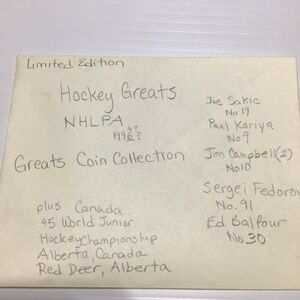 Limited Edition
Hockey Greats
NHLPA
1996?
Greats Coin Collection
plus Canada
95 World Junior
Hockey Championship
Alberta, Canada
Red Deer, Alberta
Joe Sakic
No 19
Paul Kariya
No 9
Jim Campbell (2)
No 10
Sergei Fedorov
No. 91
Ed Balfour
No 30